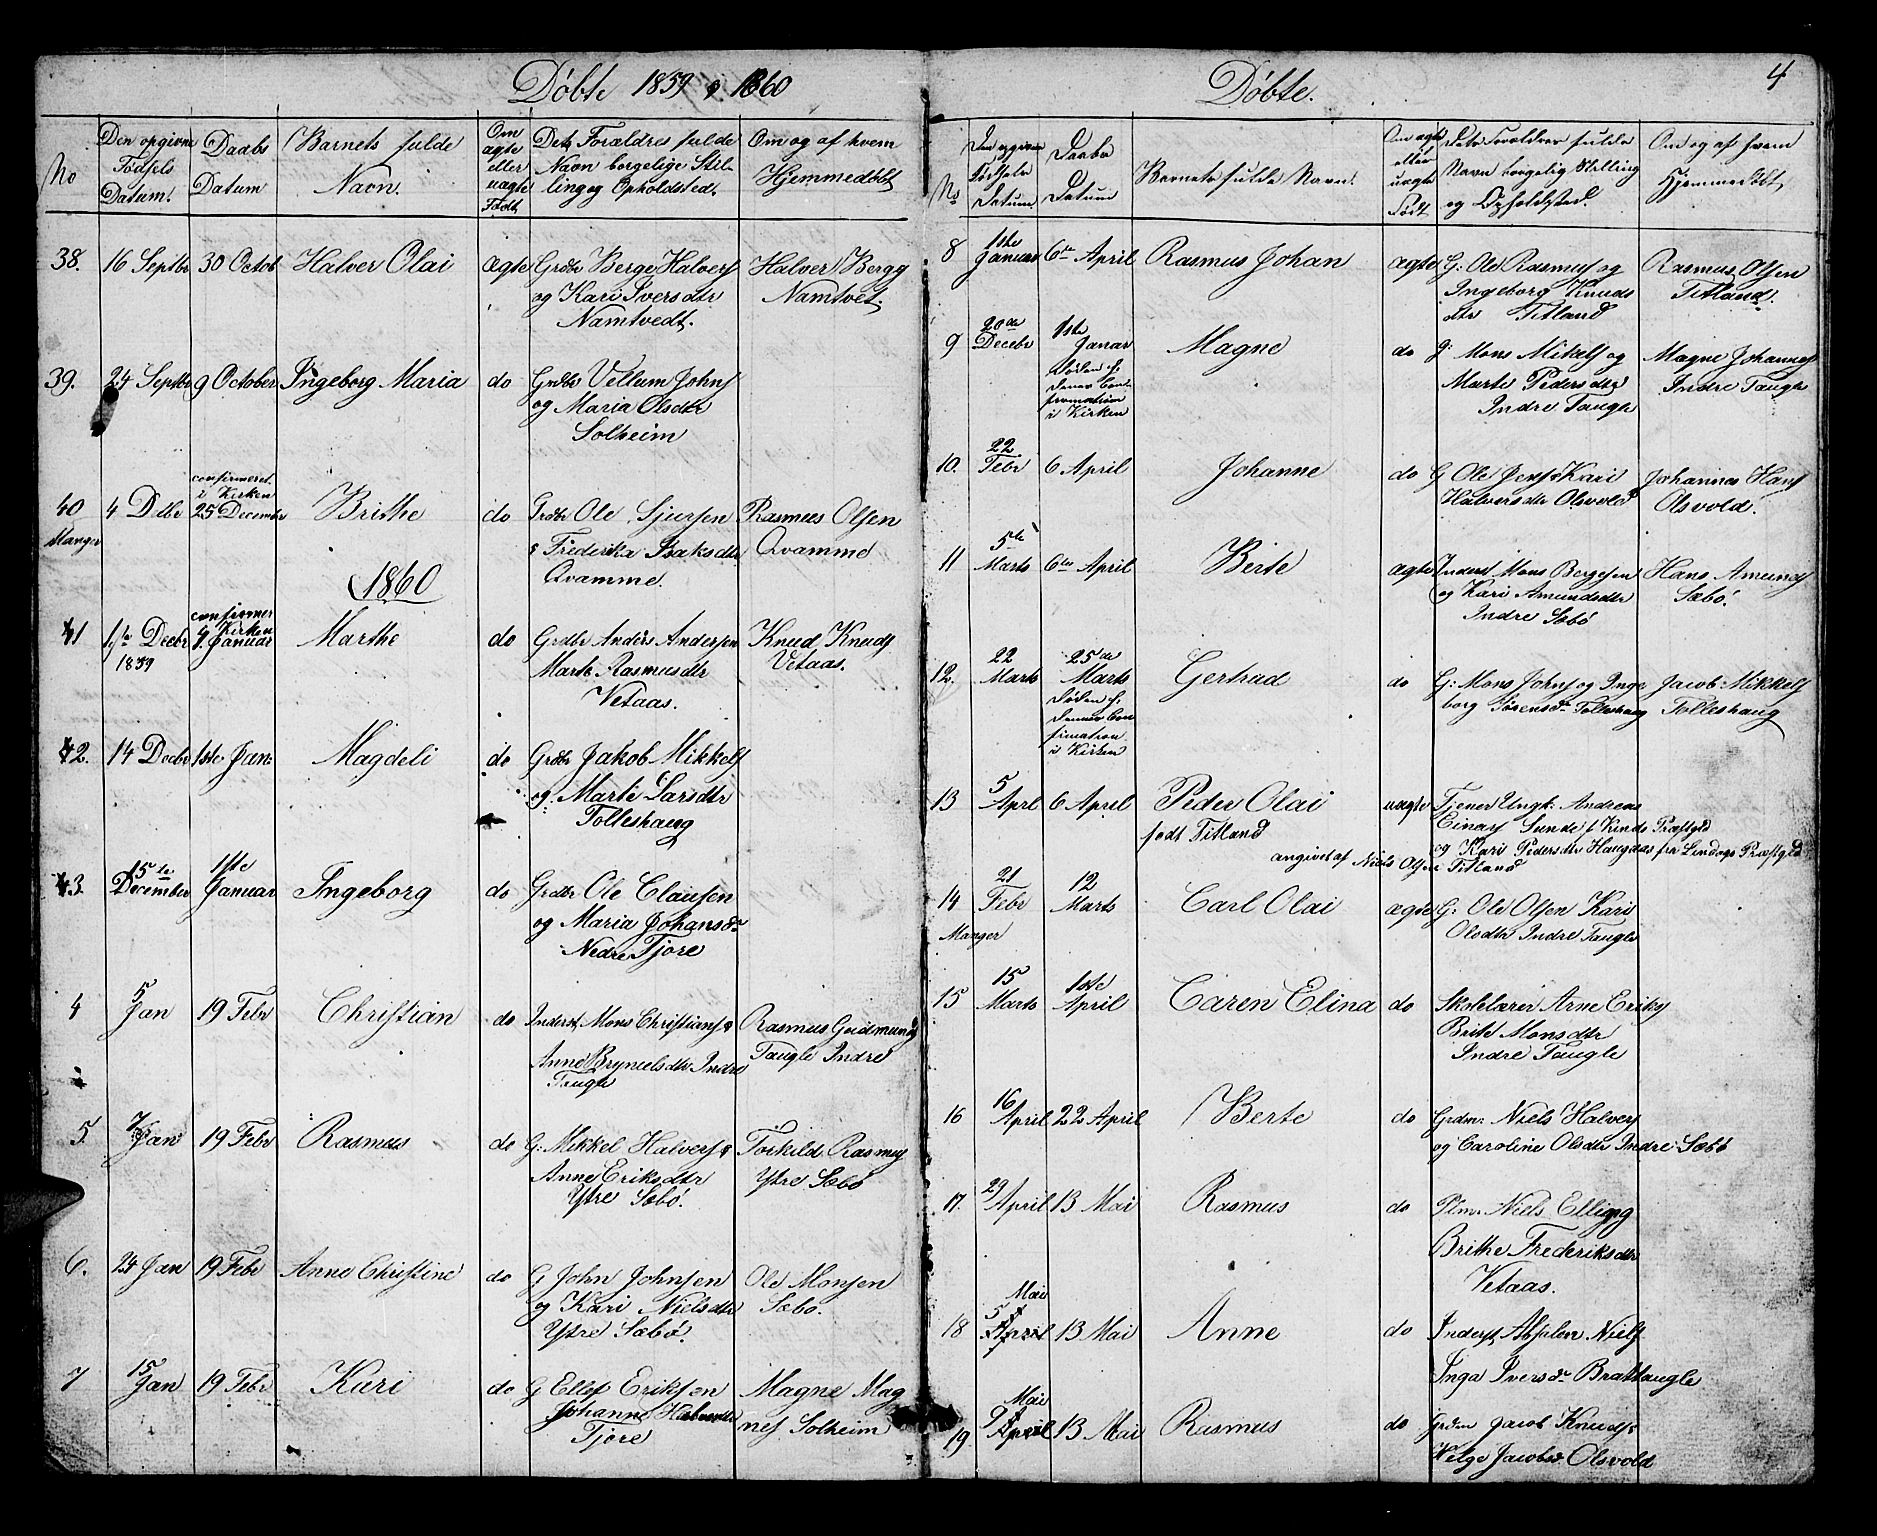 Døbte 1859 & 1860
No
Den opgivne Fødsels Datum.
Daabs Datum
Barnets fulde Navn.
Om ægte eller uægte Født
Dets Forældres fulde Navn borgelige Stilling og Opholdsted.
Om og af hvem Hjemmedøbt
38. 16 Septbr 30 Octob Halver Olai ægte Grdbr Berge Halvers Halver Berg
og Kari Iversdtr Namtvet.
Namtvedt.
39. 24 Septbr 9 October Ingeborg Maria do Grdbr Vellum Johns
og Maria Olsdtr
Solheim
confirmeret
i Kirken
40 4 Dcbr 25 December Brithe do Grdbr Ole Sjursen Rasmus Olsen
Manger & Frederika Isaksdtr Qvamme
Qvamme.
1860
confirmer
i Kirken
41 Decbr 1. Januar Marthe do Grdbr Anders Andersen Knud Knuds
1859 Marte Rasmusdtr Vetaas.
Vetaas.
42. 14 Decbr 1ste Jan: Magdeli do Grdbr Jakob Mikkels
og Marte Larsdtr
Tolleshaug
43. 15de December 1ste Januar Ingeborg do Grdbr Ole Clausen
og Maria Johansdr
Nedre Tjore
4 5 Jan 19 Febr Christian do Inderst Mons Christians & Rasmus Gudmunds
Anne Brynielsdtr Indre Taugle Indre
Taugle
5. 7 Jan 19 Febr Rasmus do G: Mikkel Halvers & Torkild Rasmus
Anne Eriksdtr Ytre Sæbø
Ytre Sæbø.
6. 24 Jan 19 Febr Anne Christine do G John Johnsen Ole Monsen
og Kari Nielsdtr Sæbø.
Ytre Sæbø.
7 15 Jan 19 Febr Kari do G Ellef Eriksen Magne Mag
Johanne Halversdtr nes Solheim
Tjore
Døbte. 4
No
Den opgivne Fødsels Datum.
Daabs Datum
Barnets fulde Navn.
Om ægte eller uægte Født
Dets Forældres fulde Navn borgelig Stilling og Opholdsted.
Om og af hvem Hjemmedøbt
8 1ste Januar 6te April Rasmus Johan ægte G: Ole Rasmus og Rasmus Olsen
Ingeborg Knuds Titland.
dtr Titland
9 20de Decebr 1ste Janar Magne do g: Mons Mikels og Magne Johannes
Marte Pedersdtr Indre Taugle
Indre Taugle
i Kirken
10. 22 Febr 6 April Johanne do G Ole Jens & Kari Johannes Hans
Halversdtr Olsvold Olsvold.
11 5te Marts 6te April Berte ægte Inderst Mons Bergesen Hans Amunds
og Kari Amundsdtr Sæbø.
Indre Sæbø
12. 22 Marts 25de Marts Gertrad do G: Mons Johns og Inge Jacob Mikkels
borg Sørensdr Tolleshaug Tolleshaug
i Kirken
13 5 Aprl 6 April Peder Olai uægte Tjener Ungk: Andreas
født Titland Einars Sunde f Kinds Præstgld
og Kari Pedersdtr Haugaas fra Lindaas Præstgld
angivet af Niels Olsen Titland
14 21 Febr 12 Marts Carl Olai ægte G: Ole Olsen Kari
Manger Olsdtr Indre Taugle
15 15 Marts 1ste April Caren Elina do Skolelærer Arne Eriks
Brite Monsdtr
Indre Taugle
16 16 April 22 April Berte do Grdm: Niels Halvers
og Caroline Olsdtr Indre Sæbø
17. 29 April 13 Mai Rasmus do Plm: Niels Ellings
Brithe Fredriksdtr
Vetaas.
18 5 Mai April 13 Mai Anne do Inderst Absalon Niels
Inga Iversdr Brattaugle
19. 9 Mai April 13 Mai Rasmus do Grdm Jacob Knuds:
Helge Jacobsd: Olsvold